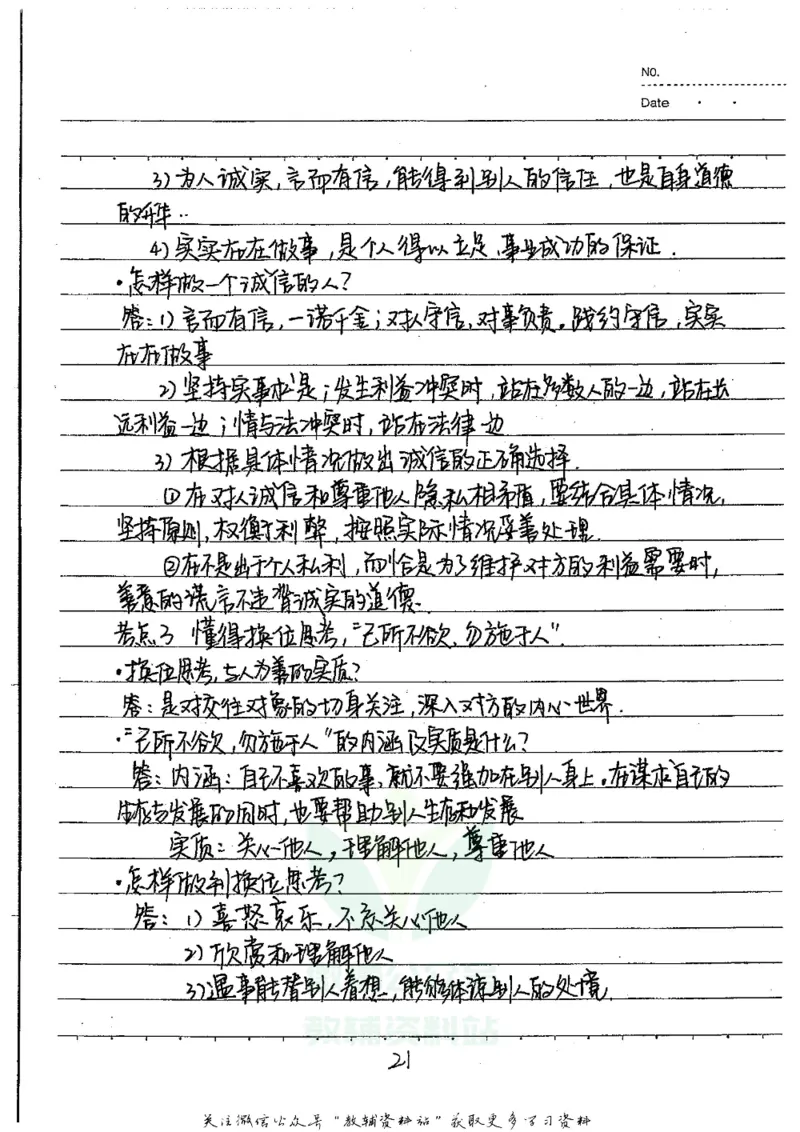 No.
Date
3) 为人诚实,言而有信,能得到别人的信任,也是自身道德
的升华..
4) 实实在在做事,是个人得以立足,事业成功的保证.
·怎样做一个诚信的人?
答:1) 言而有信,一诺千金;对人守信,对事负责。践约守信,实实
在在做事
2) 坚持实事求是;发生利益冲突时,站在多数人的一边,站在长
远利益一边;情与法冲突时,站在法律一边
3) 根据具体情况做出诚信的正确选择.
①在对人诚信和尊重他人隐私相矛盾,要结合具体情况,
坚持原则,权衡利弊,按照实际情况妥善处理.
②在不是出于个人私利,而恰是为了维护对方的利益需要时,
善意的谎言不违背诚实的道德.
考点3 懂得换位思考,“己所不欲,勿施于人”.
·换位思考,与人为善的实质?
答:是对交往对象的切身关注,深入对方的内心世界.
·“己所不欲,勿施于人”的内涵及实质是什么?
答:内涵:自己不喜欢的事,就不要强加在别人身上。在谋求自己的
生存与发展的同时,也要帮助别人生存和发展
实质:关心他人,理解他人,尊重他人
·怎样做到换位思考?
答:1) 喜怒哀乐,不忘关心他人
2) 欣赏和理解他人
3) 遇事能替别人着想,能够体谅别人的处境.
教辅资料站
21
关注微信公众号“教辅资料站”获取更多学习资料